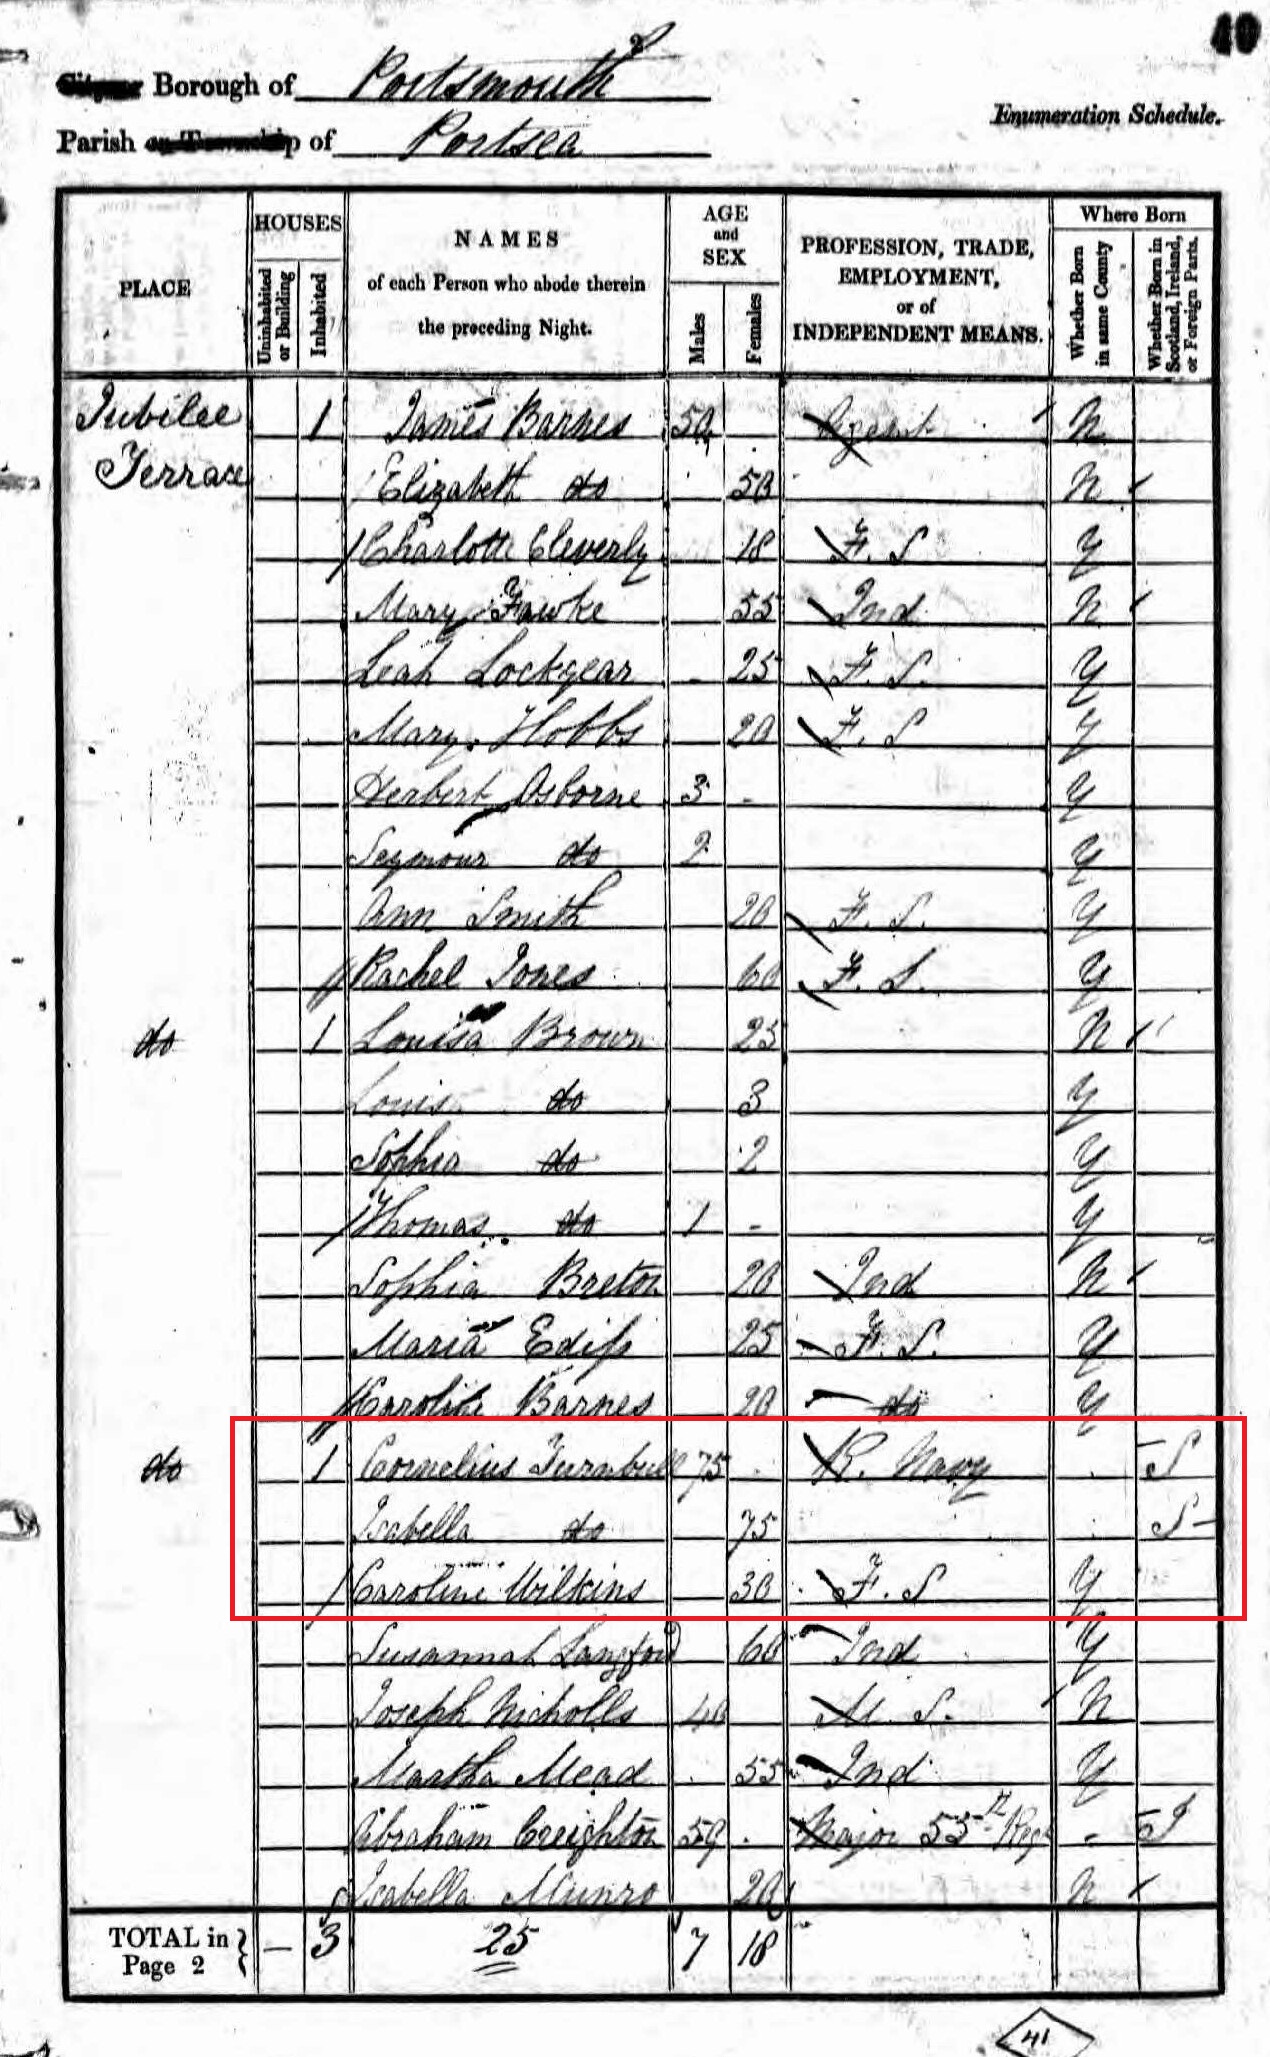 40
City or Borough of Portsmouth
Enumeration Schedule.
Parish or Township of Portsea
PLACE
HOUSES
Uninhabited or Building
Inhabited
NAMES
of each Person who abode therein
the preceding Night.
AGE
and
SEX
Males
Females
PROFESSION, TRADE,
EMPLOYMENT,
or of
INDEPENDENT MEANS.
Where Born
Whether Born in same County
Whether Born in Scotland, Ireland, or Foreign Parts.
Jubilee 1 James Barnes 50 Agent N
Terrace Elizabeth do 50 N
Charlotte Cleverly 18 F. S Y
Mary Fawke 55 Ind N
Leah Lockyear 25 F. S. Y
Mary Hobbs 20 F. S Y
Herbert Osborne 3 - Y
Seymour do 2 Y
Ann Smith 20 F. S. Y
Rachel Jones 60 F. S. Y
do 1 Louisa Brown 25 N
Louis do 3 Y
Sophia do 2 Y
Thomas do 1 - Y
Sophia Breton 20 Ind N
Maria Ediss 25 F. S. Y
Caroline Barnes 20 do Y
do 1 Cornelius Turnbull 75 R. Navy S
Isabella do 75 S
Caroline Wilkins 30 F. S Y
Susannah Langford 60 Ind Y
Joseph Nicholls 40 M. S. N
Martha Mead 55 Ind Y
Abraham Creighton 50 Major 55th Regt I
Isabella Munro 20 N
TOTAL in Page 2 } - 3 25 7 18
41